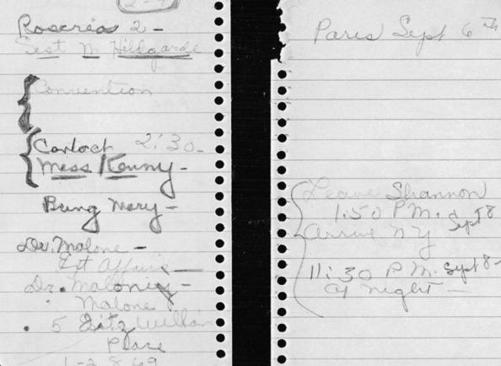 Roscréa 2 -
Sist M Hildgarde
Convention
Contact 2:30 -
Miss Kenny -
Bring Mary -
Dr. Malone -
Ext Affairs -
Dr. Maloney -
Malone
5 Fitz William
Place
1-2869
Paris Sept 6th
Leave Shannon
1:50 P.M. Sept 8
Arrive NY
11:30 P.M. Sept 8 -
at night -